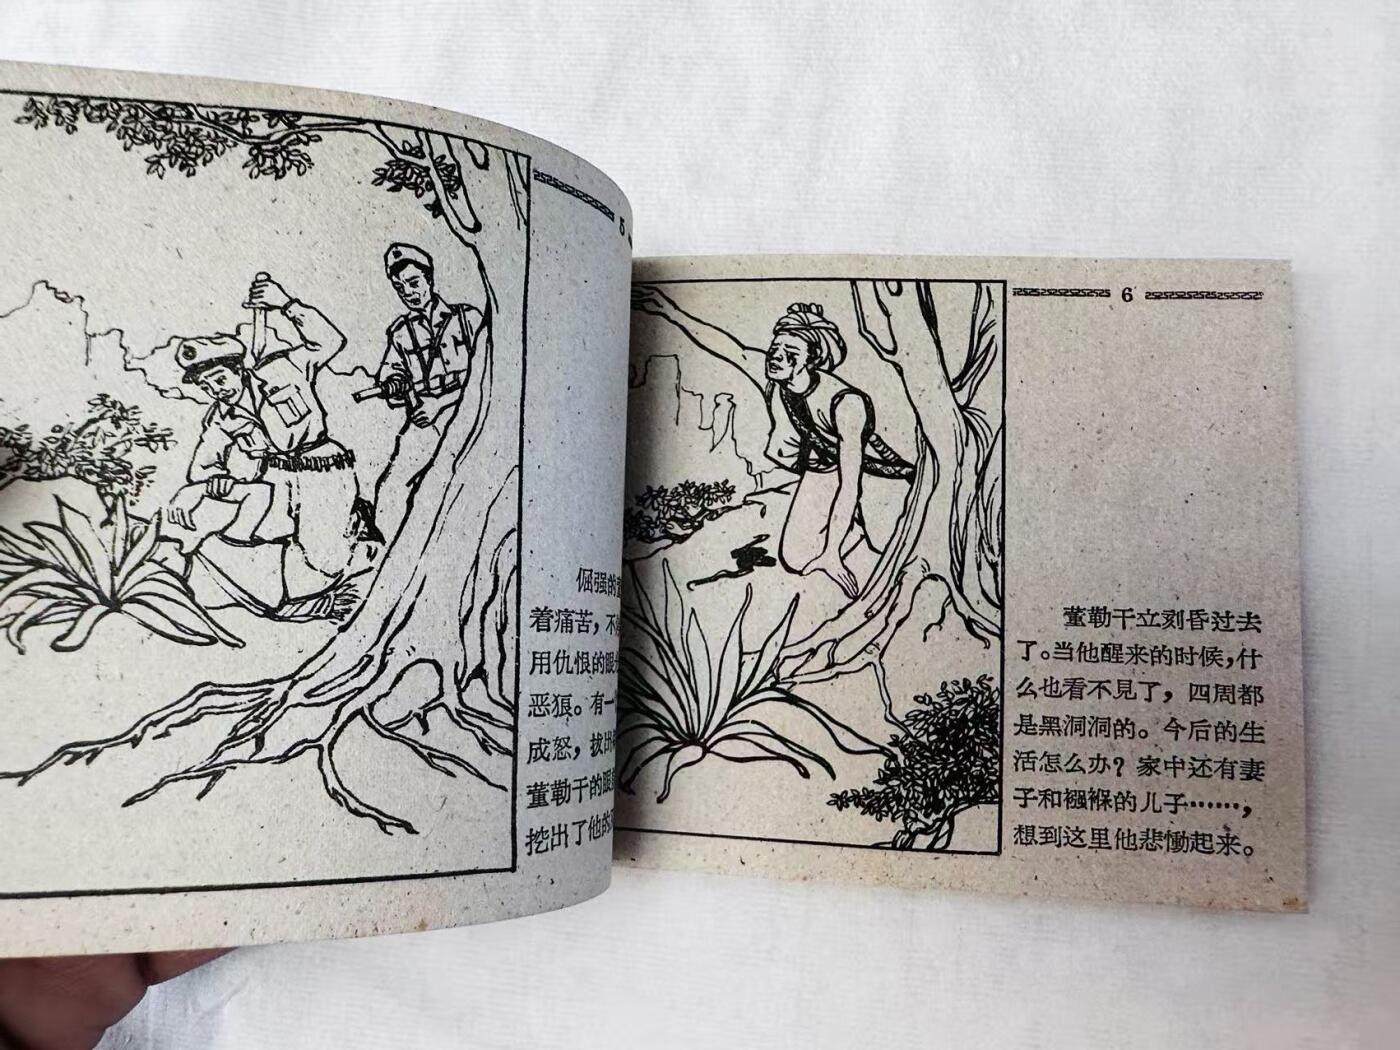 5
倔强的
着痛苦，不
用仇恨的眼
恶狼。有一
成怒，拔出
董勒干的眼
挖出了他的
6
董勒干立刻昏过去
了。当他醒来的时候，什
么也看不見了，四周都
是黑洞洞的。今后的生
活怎么办？家中还有妻
子和襁褓的儿子……，
想到这里他悲恸起来。